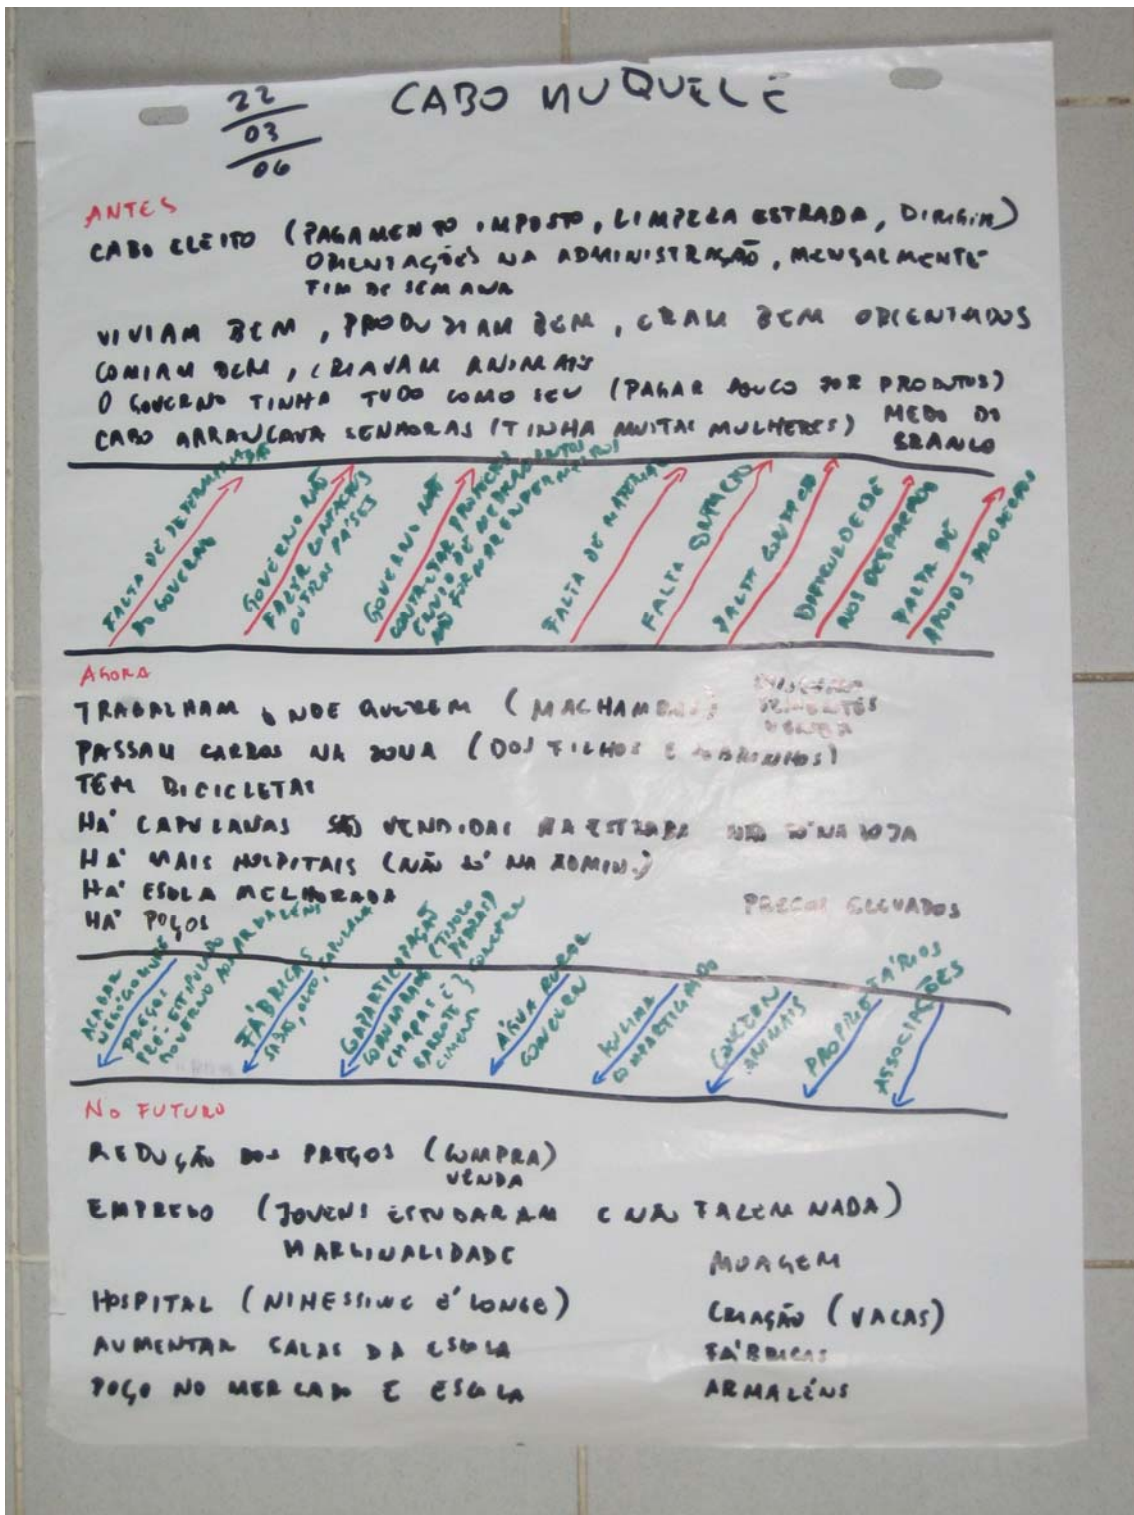 22
03
06
CABO MUQUELE
ANTES
CABO ELEITO (PAGAMENTO IMPOSTO, LIMPEZA ESTRADA, DIRIGIR)
ORIENTAÇÕES NA ADMINISTRAÇÃO, MENSALMENTE
FIM DE SEMANA
VIVIAM BEM, PRODUZIAM BEM, ERAM BEM ORIENTADOS
COMIAM BEM, CRIAVAM ANIMAIS
O GOVERNO TINHA TUDO COMO SEU (PAGAR POUCO POR PRODUTOS)
CABO ARRANCAVA SENHORAS (TINHA MUITAS MULHERES) MEDO DO
BRANCO
FALTA DE DETERMINADA
DO GOVERNO
GOVERNO NÃO
FAZER CONTACTOS
OUTROS PAÍSES
GOVERNO NÃO
CONTACTAR PROJECTOS
ENVIO DE MEDICAMENTOS
NÃO FORMAR ENFERMEIROS
FALTA DE MATERIAL
FALTA CONTACTO
FALTA CONTACTO
NOS DESPARADO
FALTA DE
APOIOS PROJECTOS
AGORA
TRABALHAM ONDE QUEREM (MACHAMBAS)
PASSAM CARROS NA ZONA (DOS FILHOS E SOBRINHOS)
TEM BICICLETAS
HÁ CAPULANAS SÃO VENDIDAS NA ESTRADA NÃO SÓ NA LOJA
HÁ MAIS HOSPITAIS (NÃO SÓ NA ADMIN.)
HÁ ESOLA MELHORADA
HÁ POÇOS
PREÇOS ELEVADOS
ACABAR
PREÇOS
PRÉ-ESTIPULADO
GOVERNO AOS ARMALÉNS
FÁBRICAS
SABÃO, OLEO, CAPULANA
COMUNIDADE (TIJOLO
PEDRAS)
CHAPAS E
BARROTE
CIMENTO
CONCERN
ÁGUA RURAL
CONCERN
KULIMA
COMPARTIGADO
CONCERN
ANIMAIS
PROPRIETÁRIOS
ASSOCIAÇÕES
NO FUTURO
REDUÇÃO DOS PREÇOS (COMPRA)
VENDA
EMPREGO (JOVENS ESTUDARAM E NÃO FAZEM NADA)
MARGINALIDADE
MOAGEM
HOSPITAL (NIHESSIUE É LONGE)
CRIAÇÃO (VACAS)
AUMENTAR SALAS DA ESCOLA
FÁBRICAS
POÇO NO MERCADO E ESCOLA
ARMALÉNS